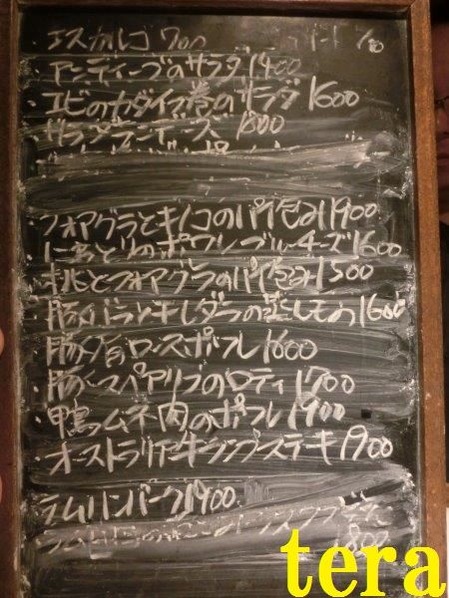 ・エスカルゴ 700
・アンディーブのサラダ 1400
・エビのカダイフ巻のサラダ 1600
・サラダランデーズ 1800
・フォアグラとキノコのパイ包み 1900
・にわとりのポワレブルーチーズ 1600
・桃とフォアグラのパイ包み 1500
・豚バラとキしダラの蒸しもの 1600
・豚肩ロースポフレ 1600
・豚スペアリブのロティ 1700
・鴨ムネ肉のポフレ 1900
・オーストラリア牛ランプステーキ 1900
ラムハンバーグ 1900
1800
tera